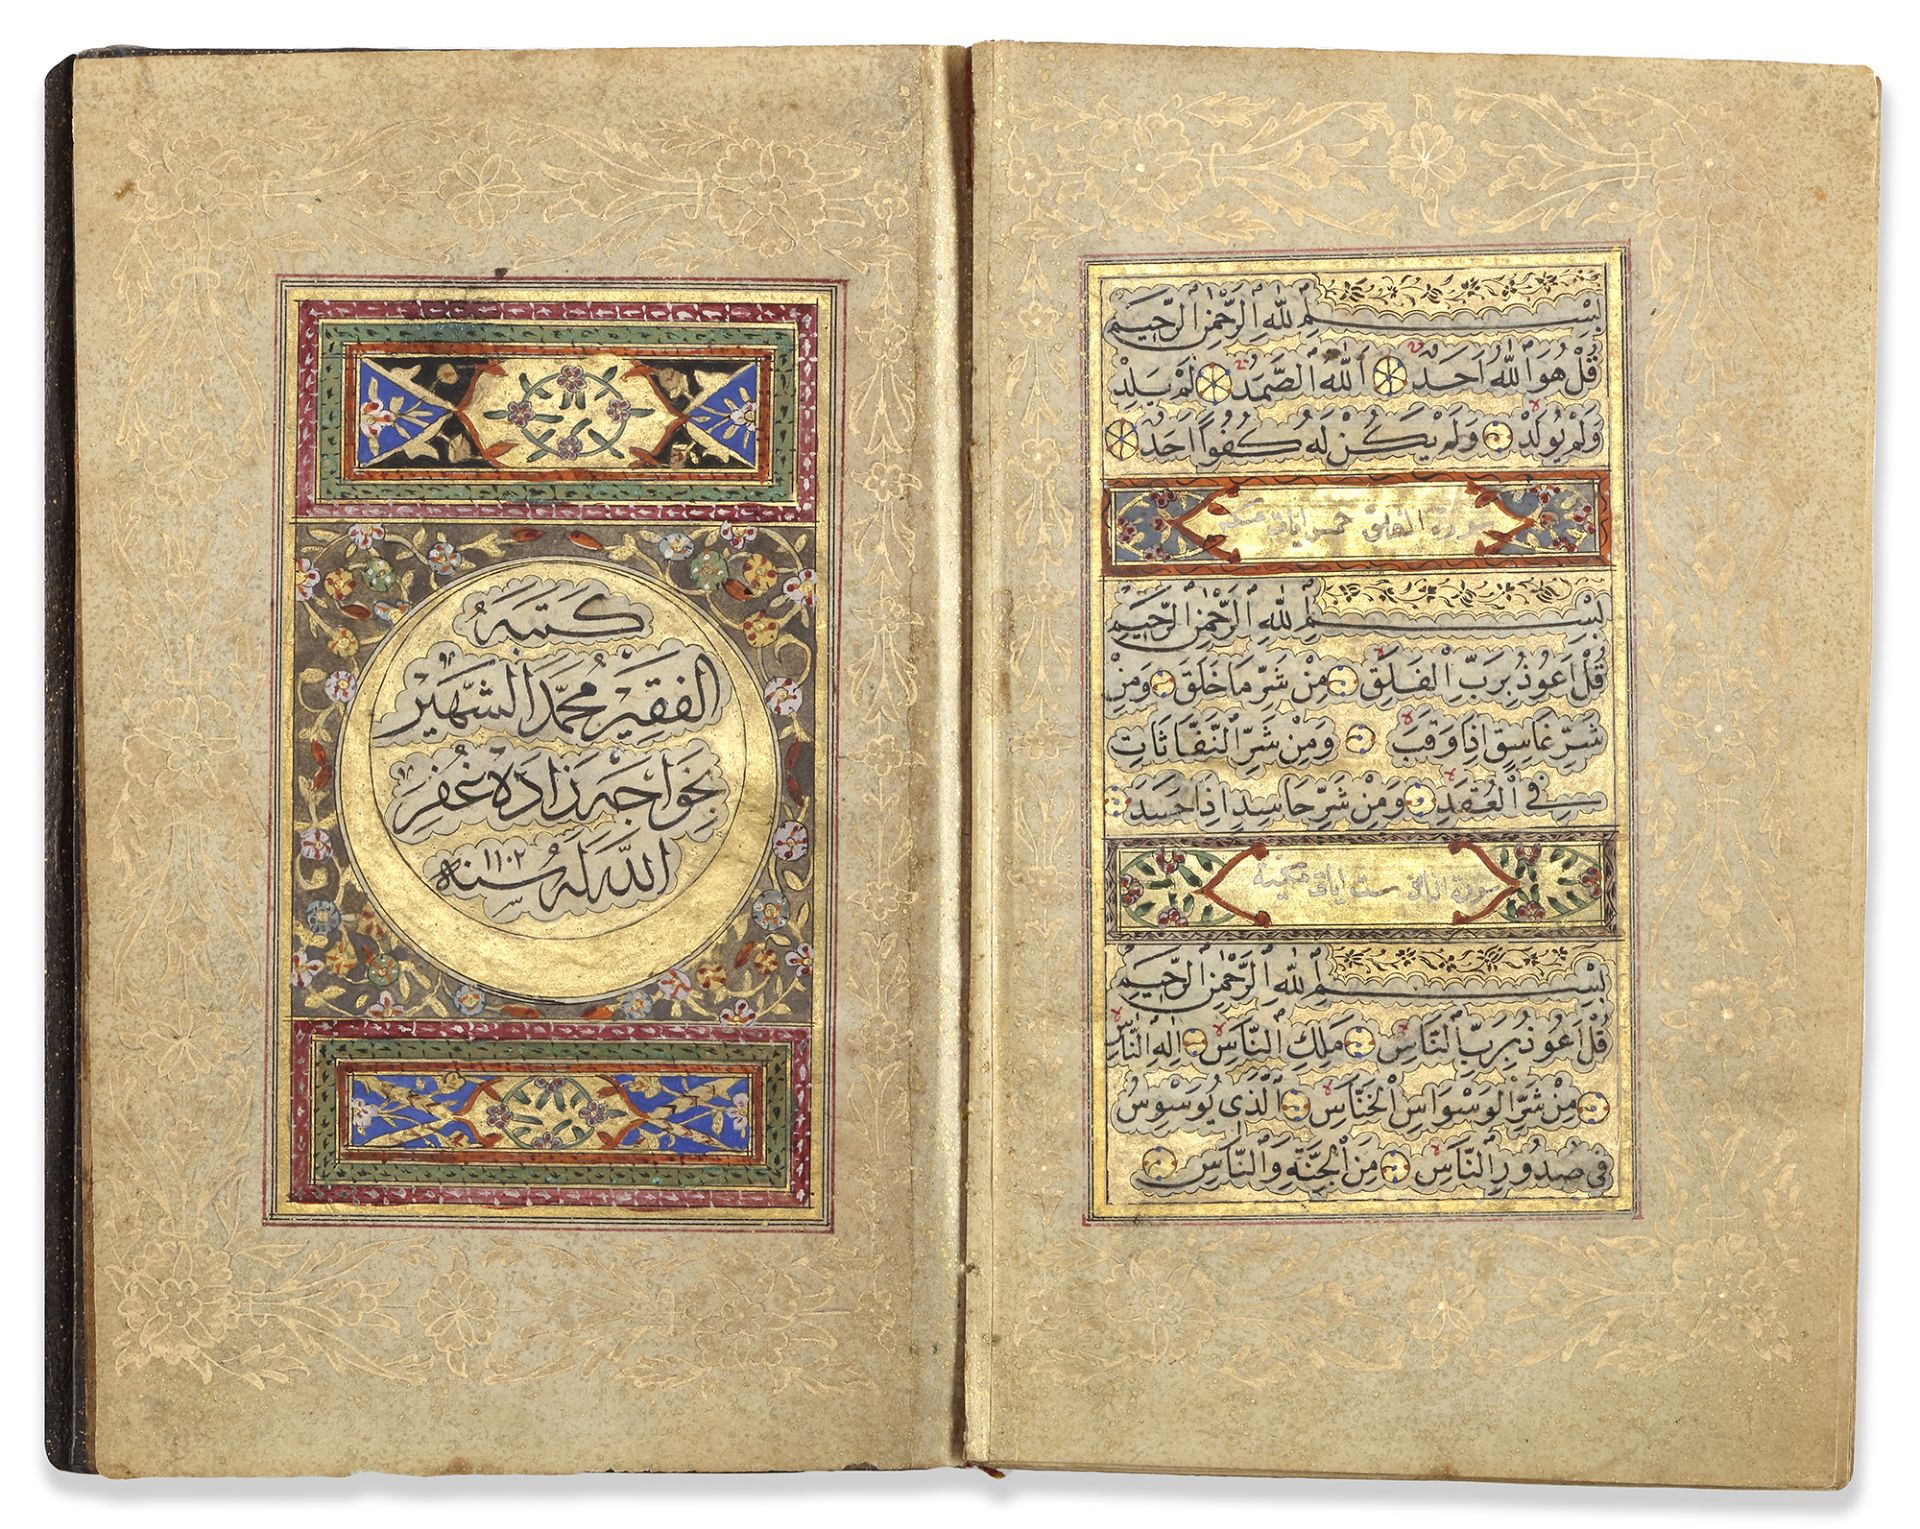 بِسْمِ اللّٰهِ الرَّحْمٰنِ الرَّحِيمِ
قُلْ هُوَ اللّٰهُ اَحَدٌ اَللّٰهُ الصَّمَدُ لَمْ يَلِدْ
وَلَمْ يُولَدْ وَلَمْ يَكُنْ لَهُ كُفُوًا اَحَدٌ
سورة الفلق خمس ايات مكية
بِسْمِ اللّٰهِ الرَّحْمٰنِ الرَّحِيمِ
قُلْ اَعُوذُ بِرَبِّ الْفَلَقِ مِنْ شَرِّ مَا خَلَقَ وَمِنْ
شَرِّ غَاسِقٍ اِذَا وَقَبَ وَمِنْ شَرِّ النَّفَّاثَاتِ
فِي الْعُقَدِ وَمِنْ شَرِّ حَاسِدٍ اِذَا حَسَدَ
سورة الناس ست ايات مكية
بِسْمِ اللّٰهِ الرَّحْمٰنِ الرَّحِيمِ
قُلْ اَعُوذُ بِرَبِّ النَّاسِ مَلِكِ النَّاسِ اِلٰهِ النَّاسِ
مِنْ شَرِّ الْوَسْوَاسِ الْخَنَّاسِ الَّذِي يُوَسْوِسُ
فِي صُدُورِ النَّاسِ مِنَ الْجِنَّةِ وَالنَّاسِ
كَتَبَهُ
الْفَقِيرُ مُحَمَّدُ الشَّهِيرُ
بِخَوَاجَه زَادَه غَفَرَ
اللّٰهُ لَهُ سنة ١١٠٢